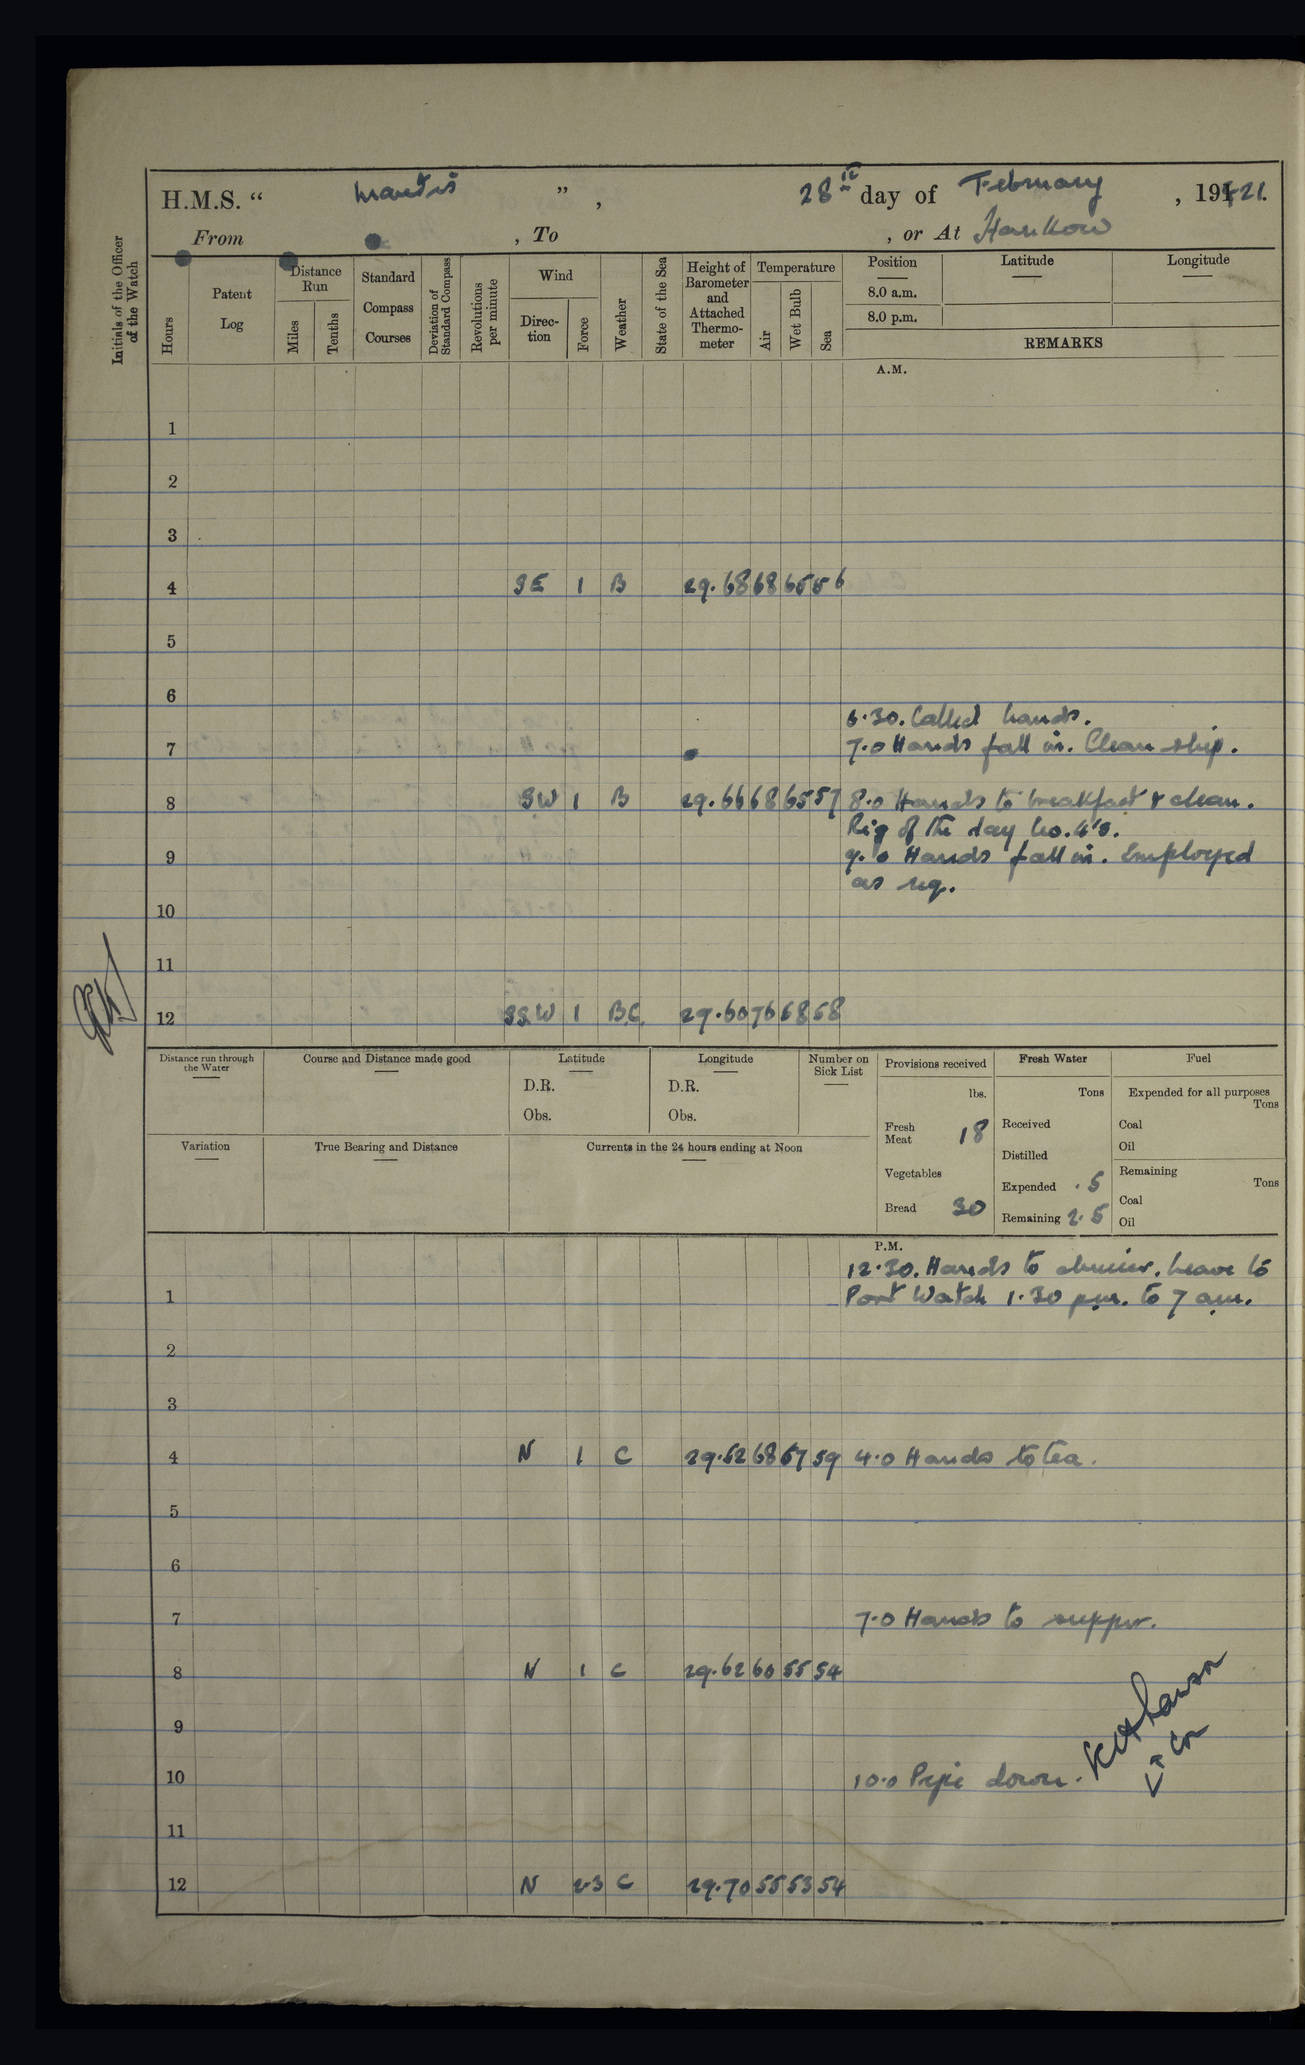 H.M.S. “ Mantis ”, 28th day of February, 1921.
From , To , or At Hankow
Initials of the Officer of the Watch
Hours
Patent Log
Distance Run
Miles
Tenths
Standard Compass Courses
Deviation of Standard Compass
Revolutions per minute
Wind
Direc-tion
Force
Weather
State of the Sea
Height of Barometer and Attached Thermo-meter
Temperature
Air
Wet Bulb
Sea
Position
8.0 a.m.
8.0 p.m.
Latitude
Longitude
REMARKS
A.M.
1
2
3
4 SE 1 B 29.68 68 65 56
5
6
6.30. Called hands.
7 7.0 Hands fall in. Clean ship.
8 SW 1 B 29.66 68 65 57 8.0 Hands to breakfast & clean.
Rig of the day No. 4's.
9 9.0 Hands fall in. Employed
as req.
10
11
12 SSW 1 B.C. 29.60 76 68 58
Distance run through the Water
Course and Distance made good
Latitude
D.R.
Obs.
Longitude
D.R.
Obs.
Number on Sick List
Variation
True Bearing and Distance
Currents in the 24 hours ending at Noon
Provisions received
lbs.
Fresh Meat 18
Vegetables
Bread 30
Fresh Water
Tons
Received
Distilled
Expended .5
Remaining 2.5
Fuel
Expended for all purposes
Tons
Coal
Oil
Remaining
Tons
Coal
Oil
P.M.
12.30. Hands to dinner. Leave to
1 Port Watch 1.30 pm. to 7 am.
2
3
4 N 1 C 29.52 68 67 59 4.0 Hands to tea.
5
6
7 7.0 Hands to supper.
8 N 1 C 29.62 60 55 54
9
10 10.0 Pipe down.
Lt Cr
11
12 N 2-3 C 29.70 55 53 54